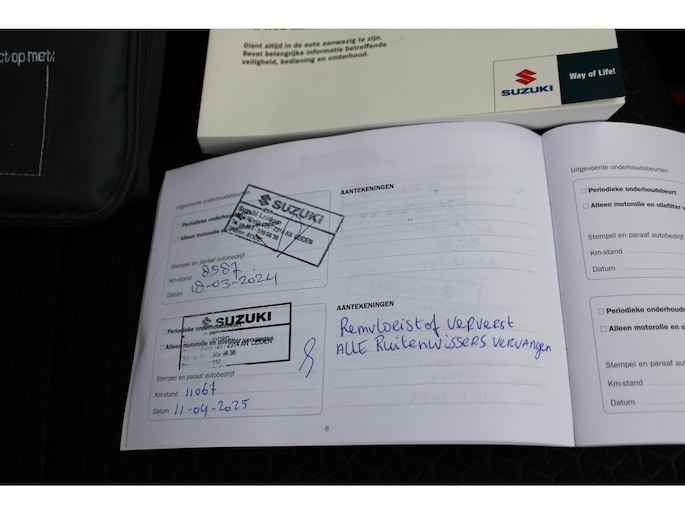 Dient altijd in de auto aanwezig te zijn.
Bevat belangrijke informatie betreffende
veiligheid, bediening en onderhoud.
SUZUKI
Way of Life!
Uitgevoerde onderhoudsbeurten
Periodieke onderhoudsbeurt
Alleen motorolie en
SUZUKI
LEIDEN
Stempel en paraaf autobedrijf
Km-stand 8587
Datum 18-03-2024
AANTEKENINGEN
SUZUKI
Periodieke onderhoudsbeurt
Alleen motorolie en oliefilter
LEIDEN
Stempel en paraaf autobedrijf
Km-stand 11067
Datum 11-04-2025
AANTEKENINGEN
Remvloeistof ververst
ALLE Ruitenwissers vervangen
6
Uitgevoerde onderhoudsbeurten
Periodieke onderhoudsbeurt
Alleen motorolie en oliefilter v
Stempel en paraaf autobedrijf
Km-stand
Datum
Periodieke onderhouds
Alleen motorolie en o
Stempel en paraaf aut
Km-stand
Datum